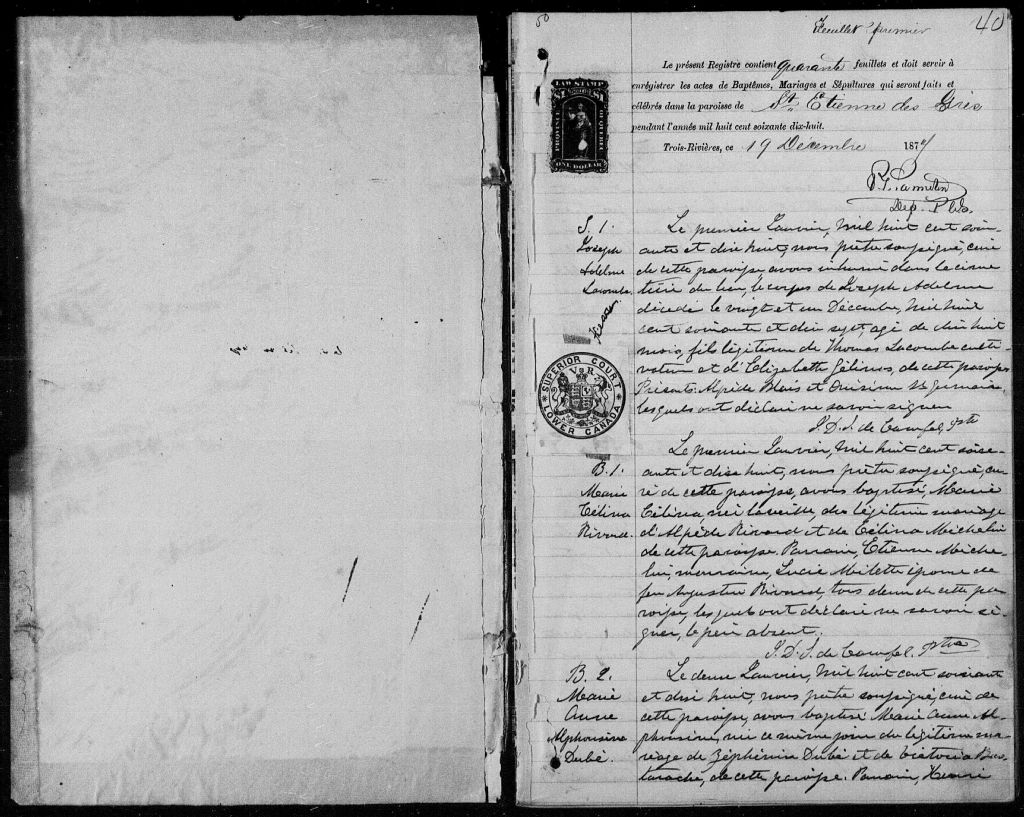 50
Feuillet premier
40
Le présent Registre contient quarante feuillets et doit servir à
enrégistrer les actes de Baptêmes, Mariages et Sépultures qui seront faits et
célébrés dans la paroisse de St Etienne des Grès
pendant l'année mil huit cent soixante dix-huit.
Trois-Rivières, ce 19 Décembre 1877
Dep. P.
LAW STAMP
PROVINCE OF QUEBEC
ONE DOLLAR
S. 1.
Joseph
Adelme
Lacombe
Le premier Janvier, mil huit cent soix-
ante et dix huit, nous prêtre soussigné, curé
de cette paroisse avons inhumé dans le cime
tière du lieu, le corps de Joseph Adelme
décédé le vingt et un Décembre, mil huit
cent soixante et dix sept, agé de dix huit
mois, fils légitime de Thomas Lacombe culti-
vateur et d'Elizabeth Gélinas, de cette paroisse
Présents Alpide Blais et Onésime St Germain
lesquels ont déclaré ne savoir signer
J. D. S. de Ptre
SUPERIOR COURT
V R
LOWER CANADA
B. 1.
Marie
Célina
Rivard.
Le premier Janvier, mil huit cent soix-
ante et dix huit, nous prêtre soussigné, cu-
ré de cette paroisse, avons baptisé, Marie
Célina, née la veille, du légitime mariage
d'Alpide Rivard et de Célina Michelin
de cette paroisse. Parrain, Etienne Miche-
lin, marraine, Lucie Milette épouse de
feu Augustin Rivard, tous deux de cette pa-
roisse, lesquels ont déclaré ne savoir si-
gner, le père absent.
J. D. S. de Ptre
B. 2.
Marie
Anne
Alphonsine
Dubé.
Le deux Janvier, mil huit cent soixante
et dix huit, nous prêtre soussigné, curé de
cette paroisse, avons baptisé Marie Anne Al-
phonsine, née ce même jour du légitime ma-
riage de Zéphirin Dubé et de Victoria
de cette paroisse. Parrain, Henri